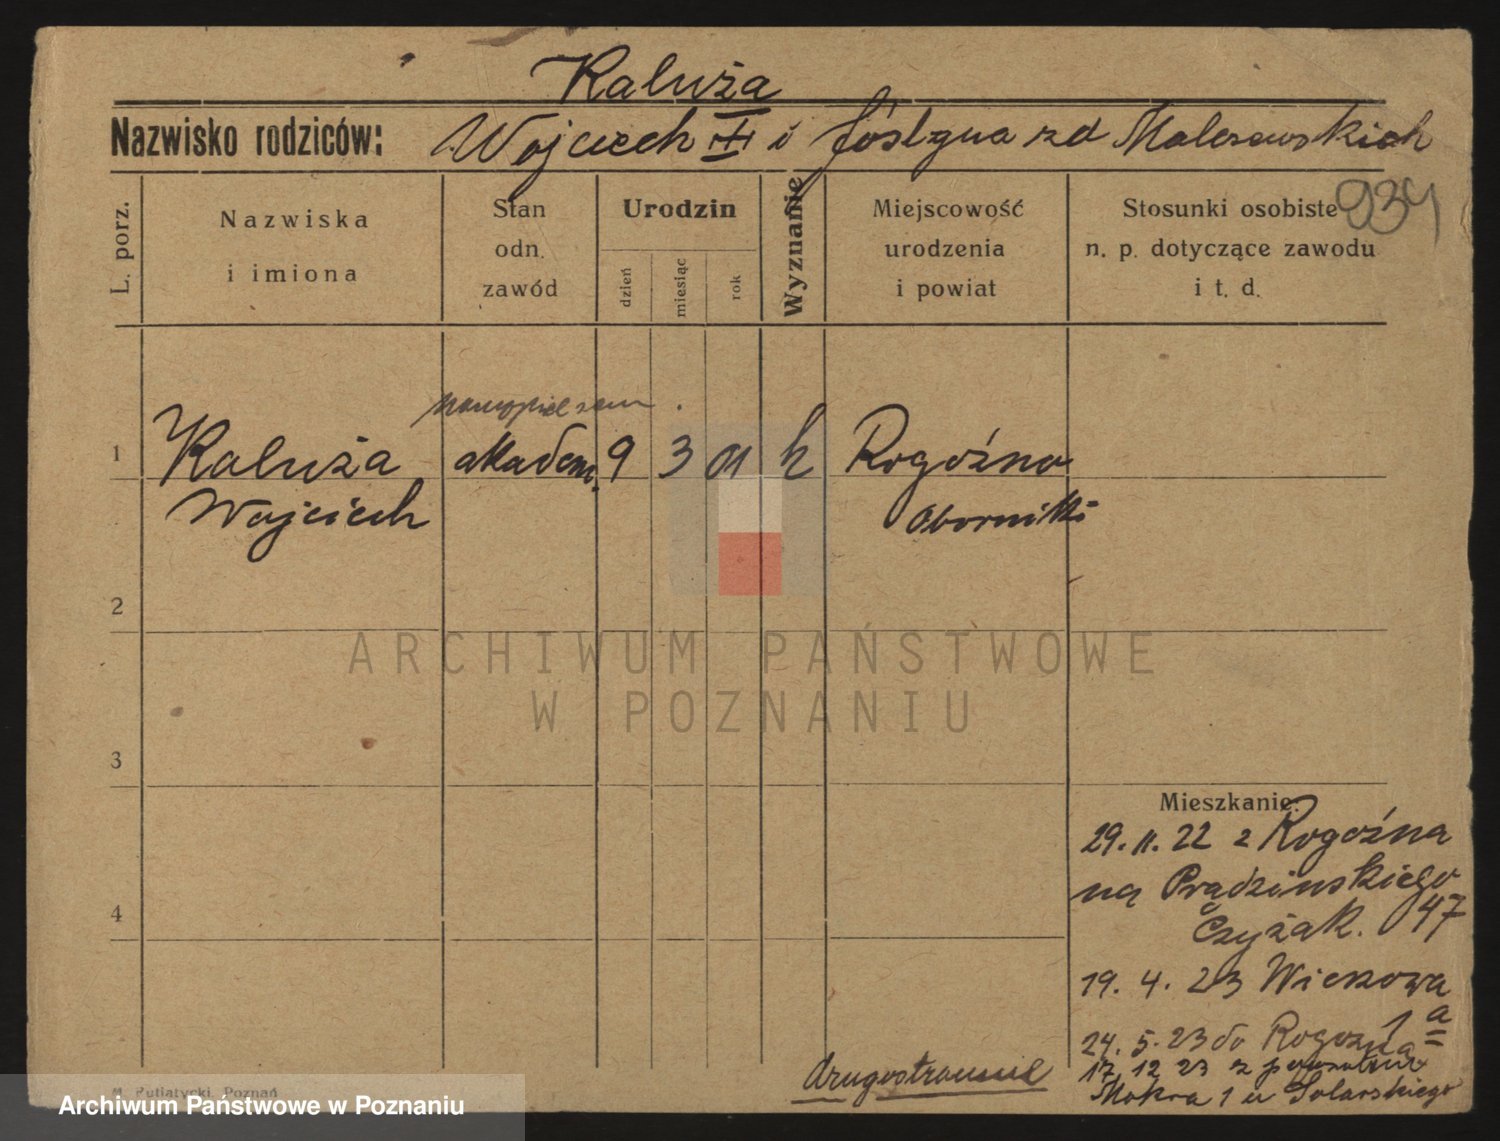 Kałuża
Nazwisko rodziców: Wojciech i zd Malczewskich
934
L. porz.
Nazwiska
i imiona
Stan
odn.
zawód
Urodzin
dzień
miesiąc
rok
Wyznanie
Miejscowość
urodzenia
i powiat
Stosunki osobiste
n. p. dotyczące zawodu
i t. d.
1 Kałuża akadem. 9 3 01 k Rogoźno
Wojciech Oborniki
2
3
4
ARCHIWUM PAŃSTWOWE
W POZNANIU
Mieszkanie:
29. 11. 22 z Rogoźna
na Prądzińskiego 47
Czyżak.
19. 4. 23 1 a
24. 5. 23 do Rogoźna
17 12 23 z powrotem
Mokra 1 u Solarskiego
drugostronnie
M. Putiatycki, Poznań
Archiwum Państwowe w Poznaniu